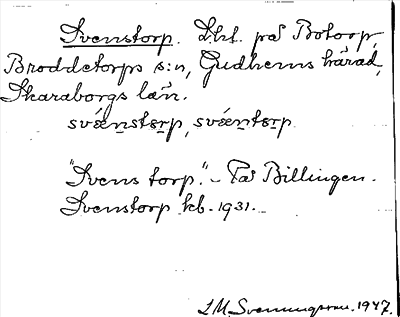 Svenstorp. Lht. på Botorp,
Broddetorps s:n, Gudhems härad,
Skaraborgs län.
svǽnstɘrp, svǽntɘrp
"Svens torp." – På Billingen.
Svenstorp kb. 1931.
L M Svenungsson. 1947.